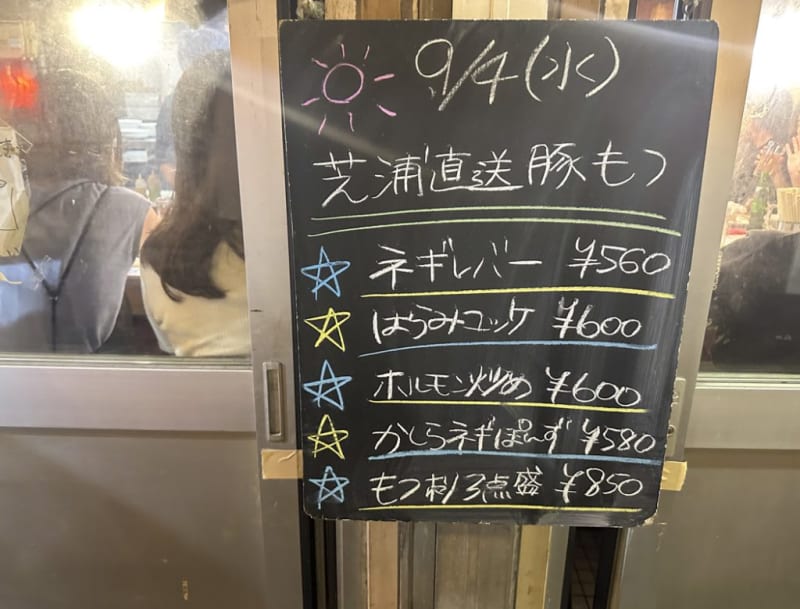 9/4(水)
芝浦直送豚もつ
ネギレバー ¥560
はらみユッケ ¥600
ホルモン炒め ¥600
かしらネギぽんず ¥580
もつ刺3点盛 ¥850